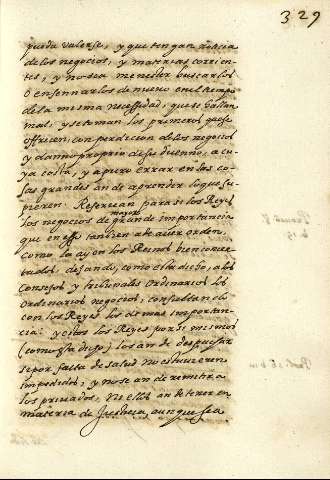 329
pueda valerse, y que tengan noticia
de los negocios, y materias corrien-
tes, y no sea menester buscarlos
o ensennarlos de nuevo en el tiempo
de la misma necessidad, que se hallan
mal, y se toman los primeros que se
offrecen, con perdicion de los negocios
y danno proprio de su duenno, a cu-
ya costa, y a puro errar en las co-
sas grandes an de aprender lo que su-
pieren. Reservan para si los Reyes
mayor
los negocios de grande importancia
que en esso tambien a de aver orden,
como la ay en los Reinos bien concer-
tados, dejando, como esta dicho, a los
Consejos y tribunales ordinarios los
ordinarios negocios, consultando
con los Reyes los de mas importan-
cia: y estos los Reyes por si mismos
(como esta dicho) los an de despachar
si por falta de salud no estuvieren
impedidos, y no se an de remitir a
los privados, ni ellos an de tener en
materia de Justicia, aunque sea